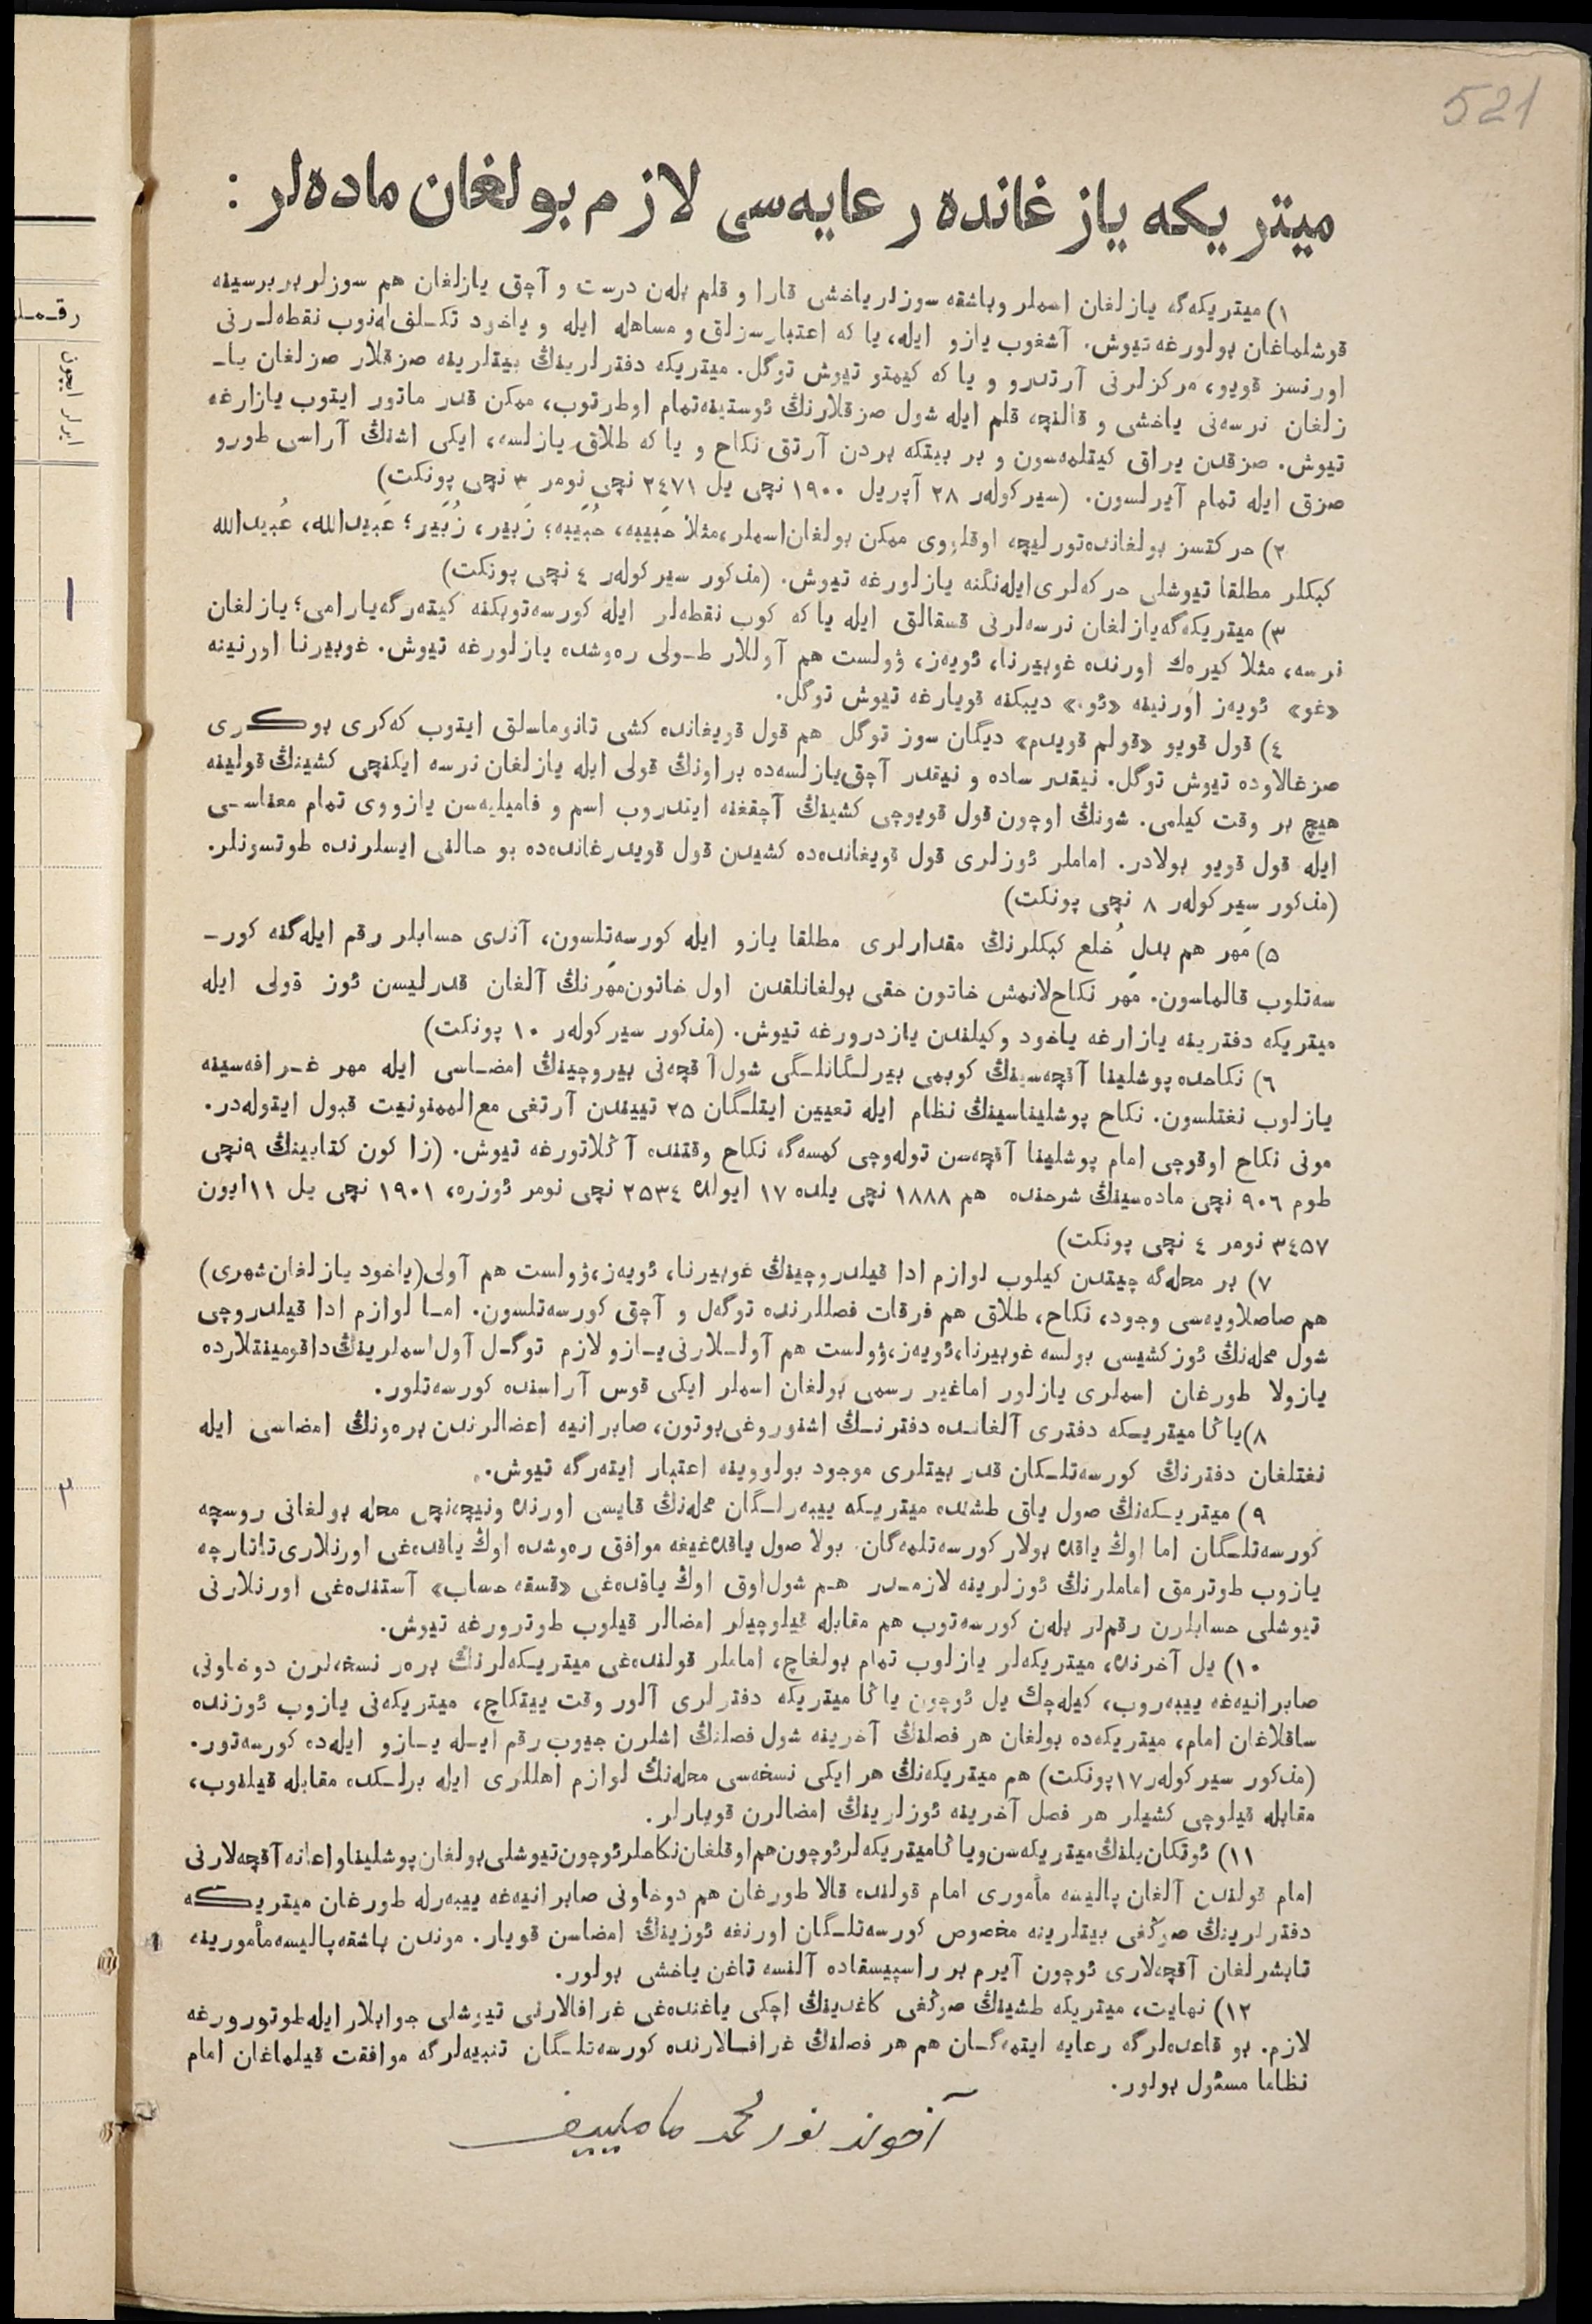 521
میتریکه یازغانده رعایه‌سی لازم بولغان ماده‌لر :
۱) میتریکه‌گه یازلغان اسملر و باشقه سوزلر یاخشی قارا و قلم بله‌ن درست و آچق یازلغان هم سوزلر بر برسینه
قوشلماغان بولورغه تیوش. آشغوب یازو ایله، یا که اعتبارسزلق و مساهله ایله و یاخود تکـلف له‌نوب نقطه‌لـرنی
اورنسز قویو، مرکزلرنی آرتدرو و یا که کیمتو تیوش توگل. میتریکه دفترلرینڭ بیتلرینه صزقلار صزلغان یا-
زلغان نرسه‌نی یاخشی و قالنچه قلم ایله شول صزقلارنڭ ئوستینه تمام اوطرتوب، ممکن قدر ماتور ایتوب یازارغه
تیوش. صزقدن یراق کیتلمه‌سون و بر بیتکه بردن آرتق نکاح و یا که طلاق یازلسه، ایکی اشنڭ آراسی طورو
صزق ایله تمام آیرلسون. (سیرکوله‌ر ۲۸ آپریل ۱۹۰۰ نچی یل ۲٤۷۱ نچی نومر ۳ نچی پونکت)
۲) حرکتسز بولغانده تورلیچه اوقلووی ممکن بولغان اسملر، مثلاً حَبیبه، حُبَیبه؛ زَبیر، زُبَیر؛ عَبیدالله، عُبیدالله
کبکلر مطلقا تیوشلی حرکه‌لری ایله‌نگنه یازلورغه تیوش. (مذکور سیرکوله‌ر ٤ نچی پونکت)
۳) میتریکه‌گه یازلغان نرسه‌لرنی قسقالق ایله یا که کوب نقطه‌لر ایله کورسه‌توبکنه کیته‌رگه یارامی؛ یازلغان
نرسه، مثلا کیره‌ك اورنده غوبیرنا، ئویه‌ز، ۋولست هم آوللار طـولی ره‌وشده یازلورغه تیوش. غوبیرنا اورنینه
«غو» ئویه‌ز اورنینه «ئو» دیبکنه قویارغه تیوش توگل.
٤) قول قویو «قولم قویدم» دیگان سوز توگل هم قول قویغانده کشی تانوماسلق ایتوب که‌کری بوکـری
صزغالاوده تیوش توگل. نیقدر ساده و نیقدر آچق یازلسه‌ده براونڭ قولی ایله یازلغان نرسه ایکنچی کشینڭ قولینه
هیچ بر وقت کیلمی. شونڭ اوچون قول قویوچی کشینڭ آچقغنه ایتدروب اسم و فامیلیه‌سن یازووی تمام معناسـی
ایله قول قویو بولادر. اماملر ئوزلری قول قویغانده‌ده کشیدن قول قویدرغانده‌ده بو حالنی ایسلرنده طوتسونلر.
(مذکور سیرکوله‌ر ۸ نچی پونکت)
۵) مَهر هم بدلِ خُلع کبکلرنڭ مقدارلری مطلقا یازو ایله کورسه‌تلسون، آندی حسابلر رقم ایله‌گنه کور-
سه‌تلوب قالماسون. مَهر نکاح‌لانمش خاتون حقی بولغانلقدن اول خاتون مَهرنڭ آلغان قدرلیسن ئوز قولی ایله
میتریکه دفترینه یازارغه یاخود وکیلندن یازدرورغه تیوش. (مذکور سیرکوله‌ر ۱۰ پونکت)
٦) نکاحده پوشلینا آقچه‌سینڭ کوبمی بیرلـگانلـگی شول آقچه‌نی بیروچینڭ امضـاسی ایله مهر غـرافه‌سینه
یازلوب نغتلسون. نکاح پوشلیناسینڭ نظام ایله تعیین ایتلـگان ۲۵ تییندن آرتغی مع‌الممنونیت قبول ایتوله‌در.
مونی نکاح اوقوچی امام پوشلینا آقچه‌سن توله‌وچی کمسه‌گه نکاح وقتنده آڭلاتورغه تیوش. (زاکون کتابینڭ ۹نچی
طوم ۹۰٦ نچی ماده‌سینڭ شرحنده هم ۱۸۸۸ نچی یلده ۱۷ ایولده ۲۵۳٤ نچی نومر ئوزره، ۱۹۰۱ نچی یل ۱۱ ایون
۳٤۵۷ نومر ٤ نچی پونکت)
۷) بر محله‌گه چیتدن کیلوب لوازم ادا قیلدروچینڭ غوبیرنا، ئویه‌ز، ۋولست هم آولی (یاخود یازلغان شهری)
هم صاصلاویه‌سی وجود، نکاح، طلاق هم فرقات فصللرنده توگه‌ل و آچق کورسه‌تلسون. امـا لوازم ادا قیلدروچی
شول محله‌نڭ ئوز کشیسی بولسه غوبیرنا، ئویه‌ز، ۋولست هم آولـلارنی یـازو لازم توگـل آول اسملرینڭ داقومینتلارده
یازولا طورغان اسملری یازلور اما غیر رسمی بولغان اسملر ایکی قوس آراسنده کورسه‌تلور.
۸) یاڭا میتریـکه دفتری آلغانـده دفترنـڭ اشنوروغی بوتون، صابرانیه اعضالرندن بره‌ونڭ امضاسی ایله
نغتلغان دفترنڭ کورسه‌تلـکان قدر بیتلری موجود بولووینه اعتبار ایته‌رگه تیوش.
۹) میتریـکه‌نڭ صول یاق طشنده میتریـکه ییبه‌رلـگان محله‌نڭ قایسی اورنده و نیچه‌نچی محله بولغانی روسچه
کورسه‌تلـگان اما اوڭ یاقده بولار کورسه‌تلمه‌گان. بولا صول یاقده‌غیغه موافق ره‌وشده اوڭ یاقده‌غی اورنلاری تاتارچه
یازوب طوترمق اماملرنڭ ئوزلرینه لازمـدر هـم شول اوق اوڭ یاقده‌غی «قسقه حساب» آستنده‌غی اورنلارنی
تیوشلی حسابلرن رقم‌لر بله‌ن کورسه‌توب هم مقابله قیلوچیلر امضالر قیلوب طوترورغه تیوش.
۱۰) یل آخرنده، میتریکه‌لر یازلوب تمام بولغاچ، اماملر قولنده‌غی میتریـکه‌لرنڭ بره‌ر نسخه‌لرن دوخاونی
صابرانیه‌غه ییبه‌روب، کیله‌چك یل ئوچون یاڭا میتریکه دفترلری آلور وقت ییتکاچ، میتریکه‌نی یازوب ئوزنده
ساقلاغان امام، میتریکه‌ده بولغان هر فصلنڭ آخرینه شول فصلنڭ اشلرن جیوب رقم ایـله یـازو ایله‌ده کورسه‌تور.
(مذکور سیرکوله‌ر ۱۷ پونکت) هم میتریکه‌نڭ هر ایکی نسخه‌سی محله‌نڭ لوازم اهللری ایله برلـکده مقابله قیلنوب،
مقابله قیلوچی کشیلر هر فصل آخرینه ئوزلرینڭ امضالرن قویارلر.
۱۱) ئوتکان یلنڭ میتریکه‌سن و یاڭا میتریکه‌لر ئوچون هم اوقلغان نکاحلر ئوچون تیوشلی بولغان پوشلینا و اعانه آقچه‌لارنی
امام قولندن آلغان پالیسه مأموری امام قولنده قالا طورغان هم دوخاونی صابرانیه‌غه ییبه‌رله طورغان میتریـکه
دفترلرینڭ صوڭغی بیتلرینه مخصوص کورسه‌تلـگان اورنغه ئوزینڭ امضاسن قویار. موندن باشقه پالیسه مأمورینه
تابشرلغان آقچه‌لاری ئوچون آیرم بر راسپیسقاده آلنسه تاغن یاخشی بولور.
۱۲) نهایت، میتریکه طشینڭ صوڭغی کاغدینڭ اچکی یاغنده‌غی غرافالارنی تیوشلی جوابلار ایله طوتورورغه
لازم. بو قاعده‌لرگه رعایه ایتمه‌گـان هم هر فصلنڭ غرافـالارنده کورسه‌تلـگان تنبیه‌لرگه موافقت قیلماغان امام
نظاما مسئول بولور.
آخوند نورمحمد ماملییف
رقـمـلـ
ایرلر ایچون
۱
۲